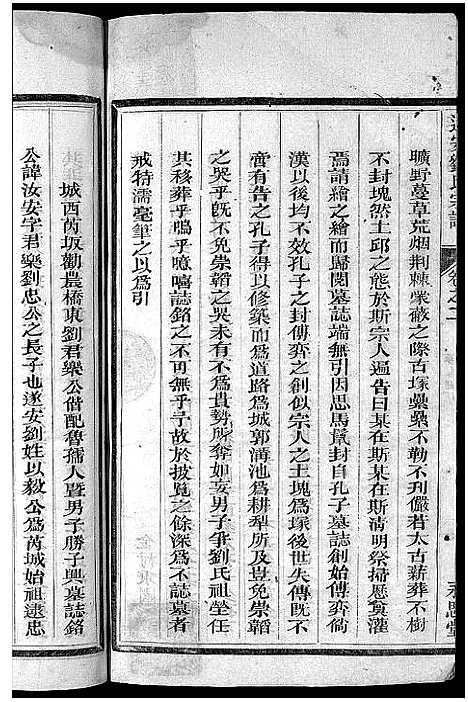 曠野蔓草荒烟荆棘蒙蔽之際古塚纍纍不勒不刋儼若太古薪葬不樹
不封塊然土邱之態於斯宗人遍告曰某在斯某在斯清明祭掃懸賞灌
焉請繪之繪而歸閱墓誌端無引因思馬鬣封自孔子墓誌創始傳弈倘
漢以後均不效孔子之封傳弈之創似宗人之土塊爲塚後世失傳既不
啻有告之孔子得以修築而爲道路爲城郭溝池爲耕犁所及豈免崇韜
之哭乎既不免崇韜之哭未有不爲貴勢所奪如妄男子爭劉氏祖塋任
其移葬乎鳴乎噫嘻誌銘之不可無乎予故於披覽之餘深爲不誌墓者
戒特濡毫筆之以爲引
城西芮坂勸農橋東劉君樂公偕配魯孺人暨男子勝子興墓誌銘
公諱汝安字君樂劉忠公之長子也遂安劉姓以毅公爲芮城始祖逮忠
劉氏宗譜
卷之一